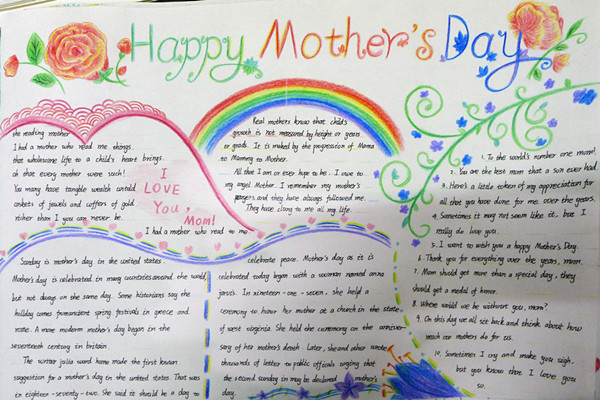 Happy Mother's Day
the reading mother
I had a mother who read me things.
that wholesome life to a child's heart brings.
oh that every mother were such!
You may have tangible wealth untold
caskets of jewels and coffers of gold.
richer than I you can never be.
I had a mother who read to me
I
LOVE
You,
Mom!
Real mothers know that child's
growth is not measured by height or years
or grade. It is maked by the progression of Mama
to Mommy to Mother.
All that I am or ever hope to be. I owe to
my angel Mother. I remember my mother's
prayers and they have always followed me.
They have clong to me all my life.
1. To the world's number one mom!
2. You are the best mom that a son ever had.
3. Here's a little token of my appreciation for
all that you have done for me. over the years.
4. Sometimes it may not seem like it, but I
really do love you.
5. I want to wish you a happy Mother's Day.
6. Thank you for everything over the years, mom.
7. Mom should get more than a special day, they
should get a medal of honor.
8. Where would we be without you, mom?
9. On this day we all set back and think about how
much our mothers do for us.
10. Sometimes I cry and make you sigh.
but you know that I love you
so.
Sunday is mother's day in the united states.
Mother's day is celebrated in many countries around the world
but not always on the same day. Some historians say the
holiday comes from ancient spring festivals in greece and
rome. A more modern mother's day began in the
seventeenth century in britain.
The writer julia ward howe made the first known
suggestion for a mother's day in the united states. That was
in eighteen-seventy-two. She said it should be a day to
celebrate peace. Mother's day as it is
celebrated today began with a woman named anna
jarvis. In nineteen-one-seven, she held a
ceremony to honor her mother at a church in the state
of west virginia. She held the ceremony on the anniver-
sary of her mother's death. Later, she and other wrote
thousands of letter to public officials urging that
the second sunday in may be declared mother's
day.